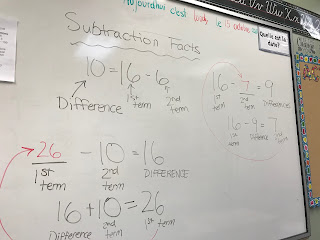 Aujourd'hui c'est lundi, le 15 octobre
Quelle est la date?
Subtraction Facts
10 = 16 - 6
Difference
1st term
2nd term
16 - 7 = 9
1st term
2nd term
DIFFERENCE
16 - 9 = 7
1st term
DIFFERENCE
2nd term
26 - 10 = 16
1st term
2nd term
DIFFERENCE
16 + 10 = 26
DIFFERENCE
2nd term
1st term